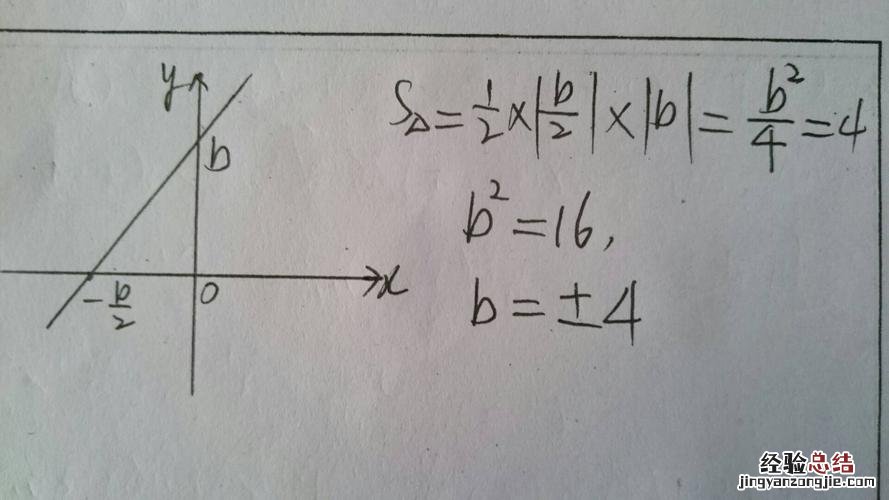 y
b
-b/2
0
x
S△=1/2×|b/2|×|b|=b²/4=4
b²=16,
b=±4
经验总结
jingyanzongjie.com